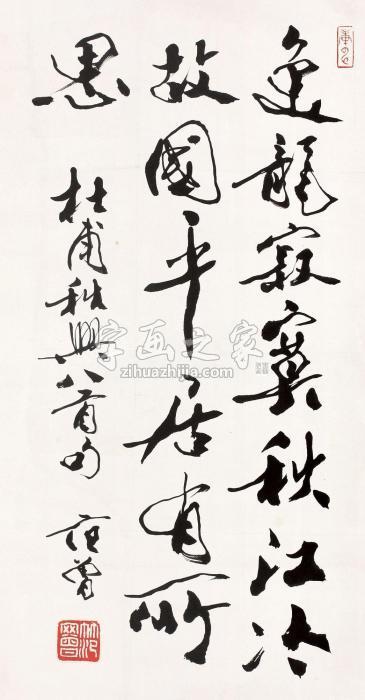 魚龍寂寞秋江冷
故國平居有所
思
杜甫秋興八首句 范曾
字画之家
www.zihuazhijia.com